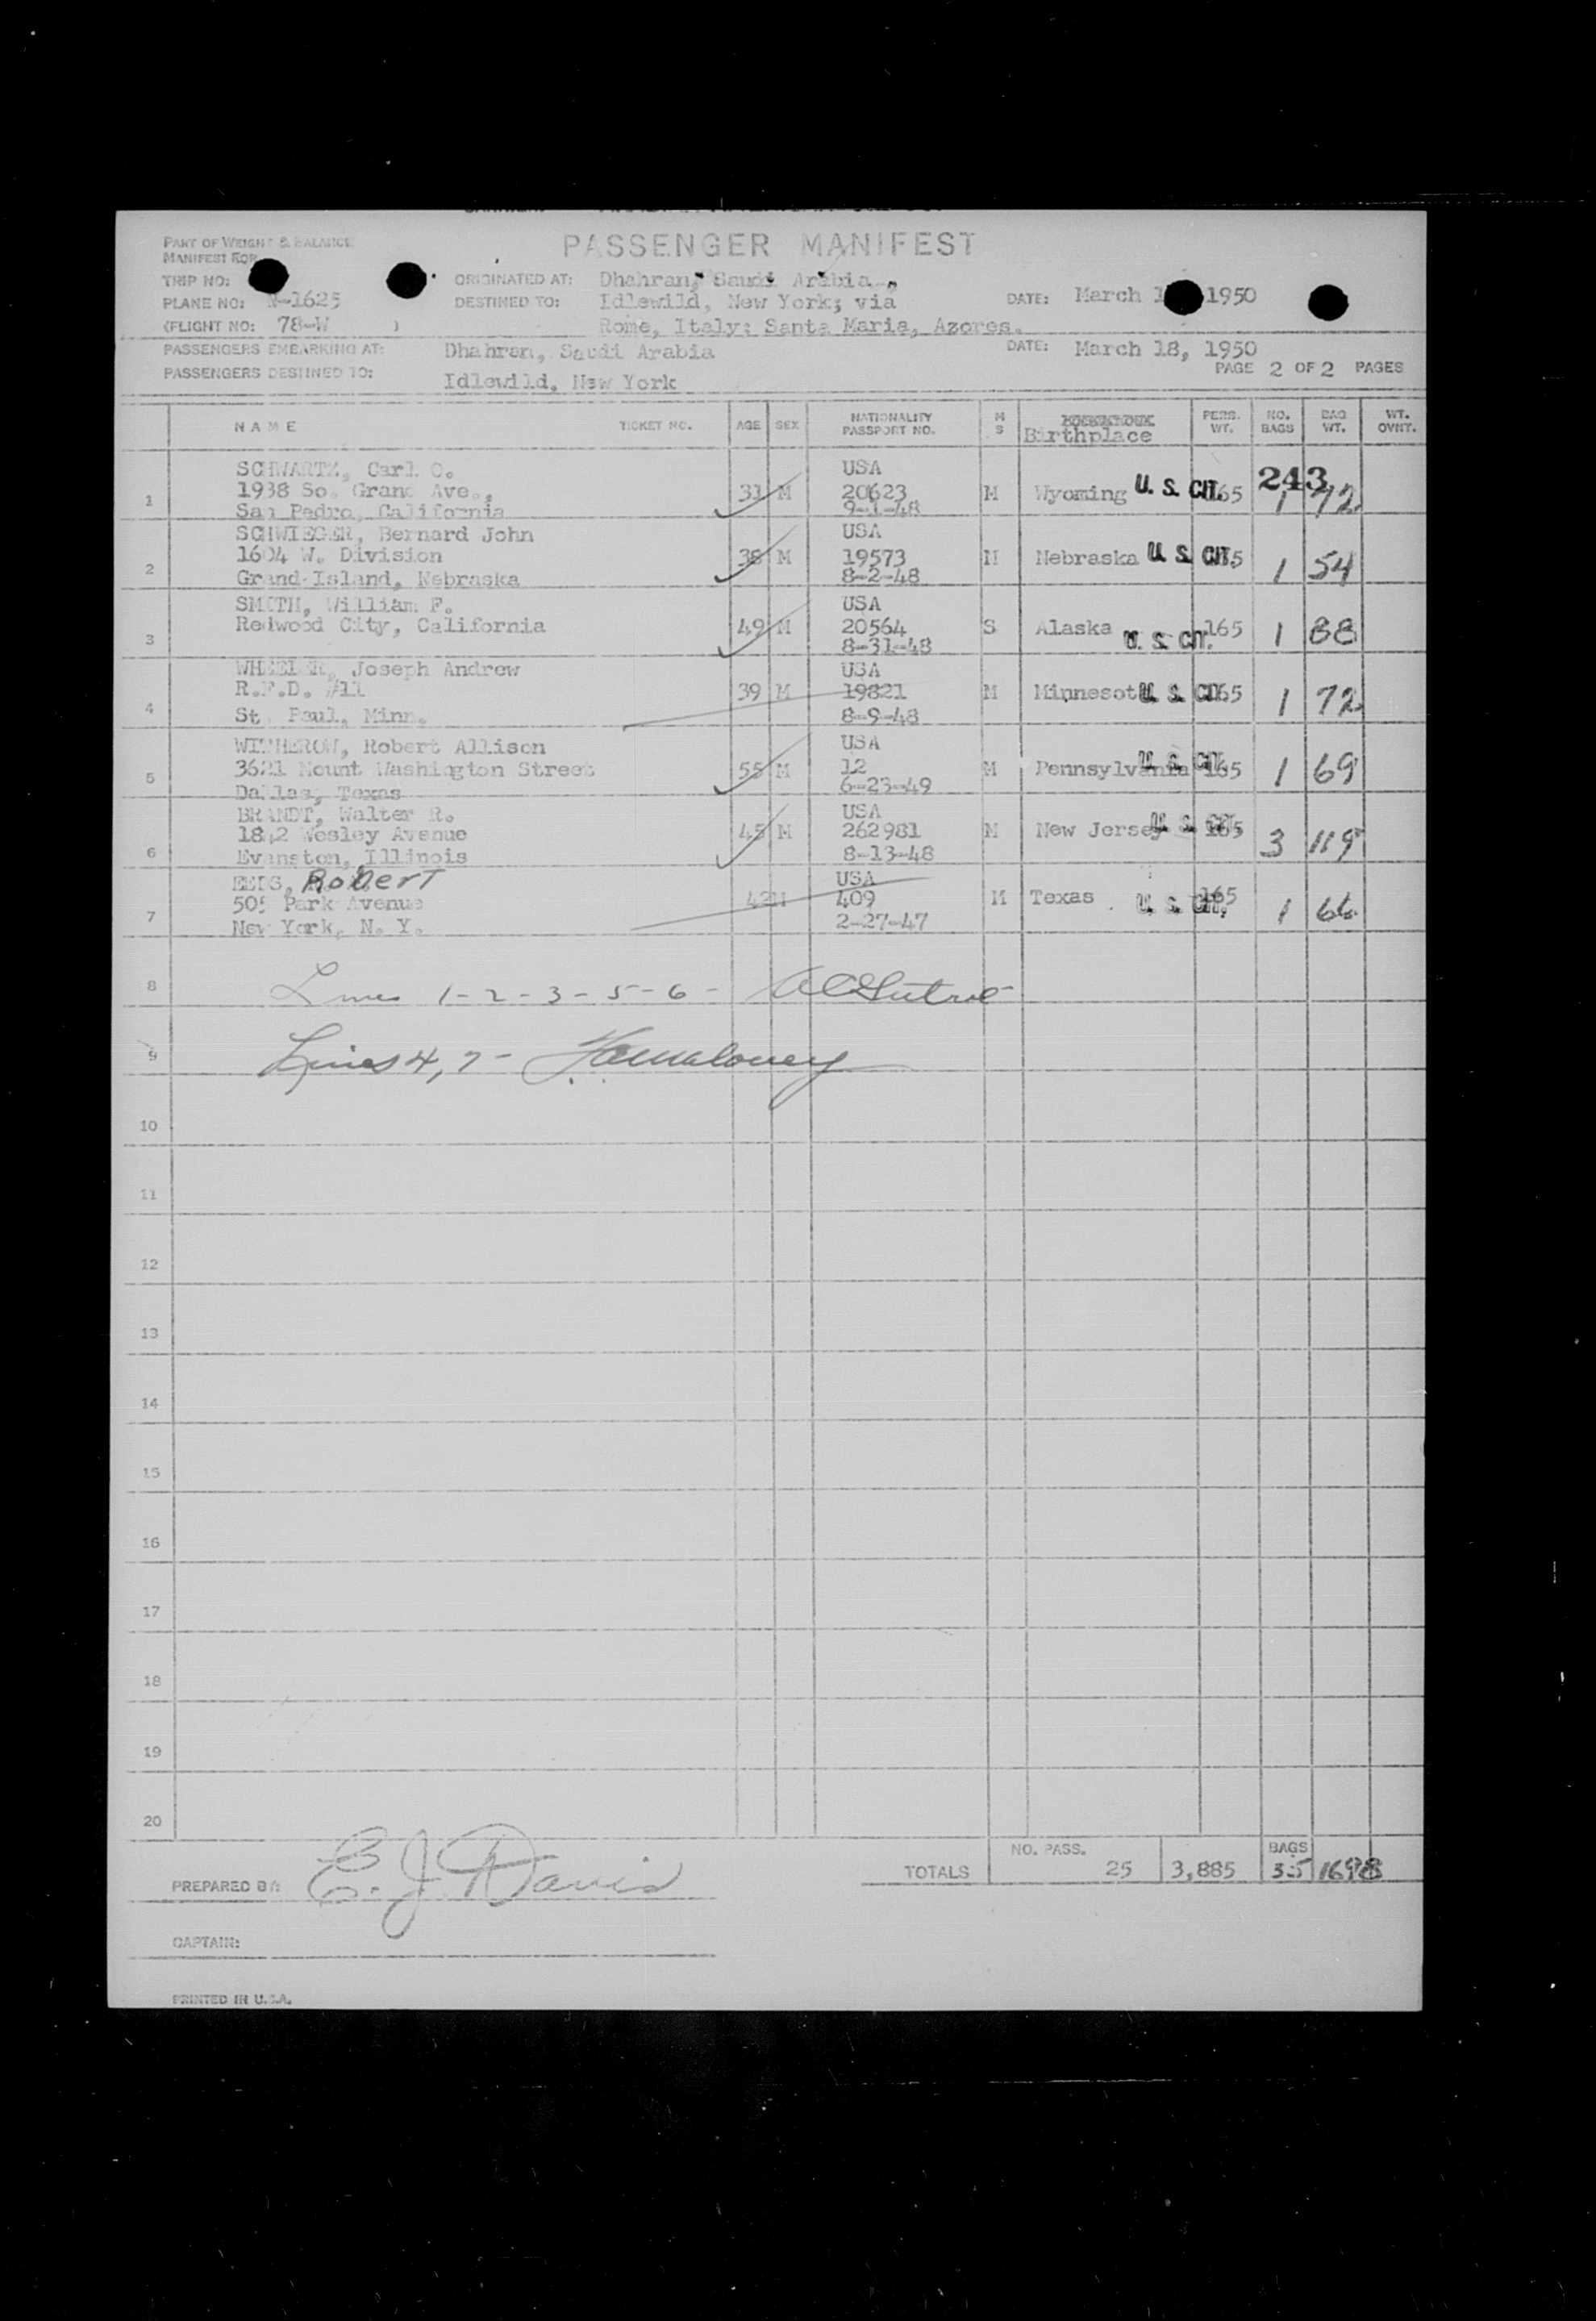 PART OF WEIGHT & BALANCE
MANIFEST FOR
PASSENGER MANIFEST
TRIP NO:
ORIGINATED AT: Dhahran, Saudi Arabia
PLANE NO: N-1625
DESTINED TO: Idlewild, New York; via
DATE: March 1 1950
(FLIGHT NO: 78-W )
Rome, Italy; Santa Maria, Azores.
PASSENGERS EMBARKING AT: Dhahran, Saudi Arabia
DATE: March 18, 1950
PASSENGERS DESTINED TO: Idlewild, New York
PAGE 2 OF 2 PAGES
NAME TICKET NO. AGE SEX NATIONALITY PASSPORT NO. M S Birthplace PERS. WT. NO. BAGS BAG WT. WT. OVNT.
243
SCHWARTZ, Carl C. USA
1 1938 So. Grand Ave., M 20623 M Wyoming U. S. CIT. 165 1 72
San Pedro, California 9-1-48
SCHWIEGER, Bernard John USA
2 1604 W. Division 38 M 19573 M Nebraska U. S. CIT. 1 54
Grand Island, Nebraska 8-2-48
SMITH, William F. USA
3 Redwood City, California 49 M 20564 S Alaska U. S. CIT. 165 1 88
8-31-48
WHEELER, Joseph Andrew USA
4 R.F.D. #11 39 M 19821 M Minnesota U. S. CIT. 165 1 72
St. Paul, Minn. 8-9-48
WITHEROW, Robert Allison USA
5 3621 Mount Washington Street 55 M 12 M Pennsylvania U. S. CIT. 165 1 69
Dallas, Texas 6-23-49
BRANDT, Walter R. USA
6 1842 Wesley Avenue 45 M 262981 M New Jersey U. S. CIT. 165 3 119
Evanston, Illinois 8-13-48
EEDS, Robert USA
7 505 Park Avenue 42 M 409 M Texas U. S. CIT. 165 1 66
New York, N. Y. 2-27-47
8 Lines 1-2-3-5-6-
9 Lines 4, 7 -
10
11
12
13
14
15
16
17
18
19
20
TOTALS NO. PASS. 25 3,885 BAGS 35 1698
PREPARED BY: C. J. Davis
CAPTAIN:
PRINTED IN U.S.A.